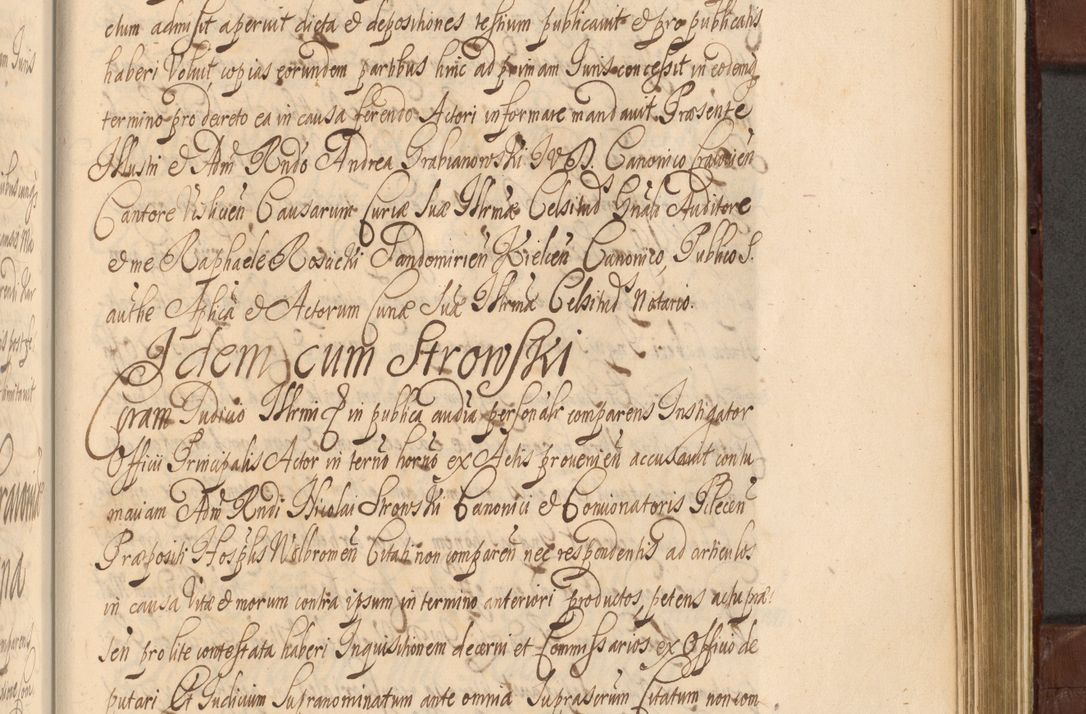 ctum admisit aperuit dicta et depositiones testium publicavit et pro publicatis
haberi voluit, copias eorundem partibus hinc ad primam Juris concessit in eodemq
termino pro decreto ea in causa ferendo Actori informare mandavit. Præsente
Illustri et Adm Rndo Andrea Grabianowski J.V.D. Canonico Cracovien
Cantore Vislicien Causarum Curiæ Suæ Illrmæ Celsitud Gnali Auditore
et me Raphaele Rosucki Sandomirien Kielcen Canonico, Publico S.
authe Aplica et Actorum Curiæ Suæ Illrmæ Celsitud Notario.
Idem cum Strowski
Coram Judicio Illrmi in publica audia personalr comparens Instigator
Officii Principalis Actor in terno horno ex Actis provenien accusavit contu
maciam Adm Rndi Nicolai Strowski Canonici et Concionatoris Pilecen
Præpositi Hosplis Wolbromen Citati non comparen nec respondentis ad articulos
in causa Vitæ et morum contra ipsum in termino anteriori productos, petens actu præ
sen pro lite contestata haberi Inquisitionem decerni et Commissarios ex Officio de
putari Et Judicium Supranominatum ante omnia Suprascrum Citatum non com